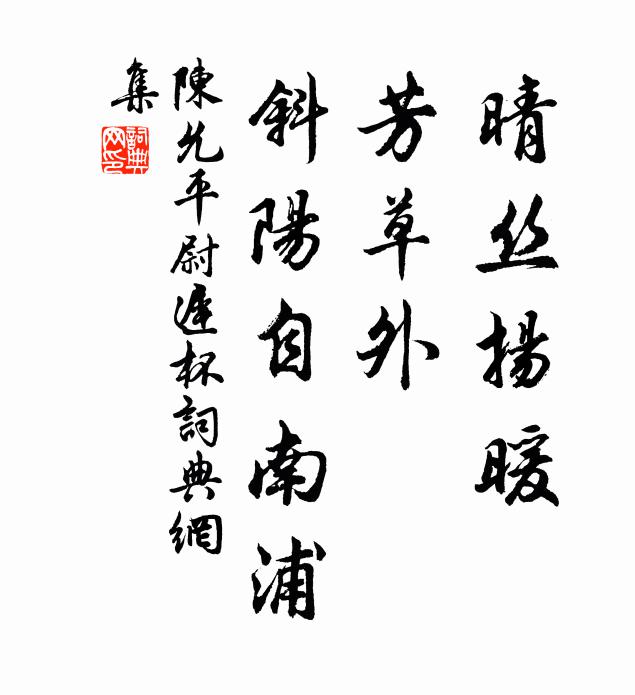 晴丝揚暖
芳草外
斜陽自南浦
陳允平尉遲杯詞典網
集
詞典
网印